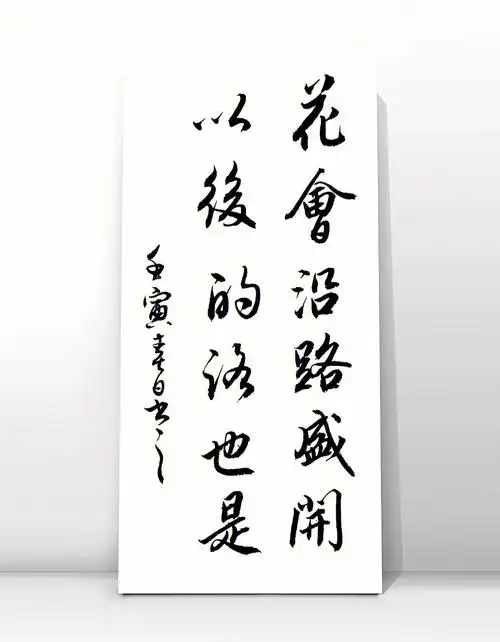 花會沿路盛開
以後的路也是
壬寅春日書之